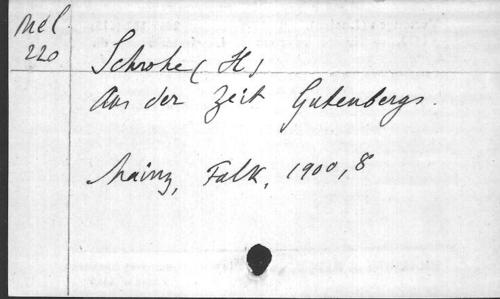 Mél.
220
Schrohe (H)
Aus der Zeit Gutenbergs.
Mainz, Falk, 1900, 8°